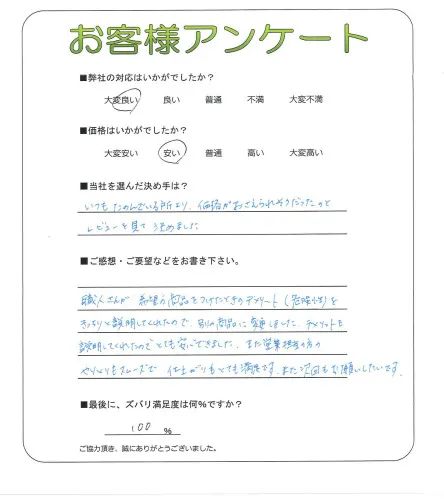 お客様アンケート
■弊社の対応はいかがでしたか？
大変良い 良い 普通 不満 大変不満
■価格はいかがでしたか？
大変安い 安い 普通 高い 大変高い
■当社を選んだ決め手は？
いつもたのんでいる所より、価格がおさえられそうだったのと
レビューを見てきめました
■ご感想・ご要望などをお書き下さい。
職人さんが 希望の商品をつけたときのデメリート(危険性)を
きっちりと説明してくれたので、別の商品に変更しました。デメリットも
説明してくれたのでとても安心できました。また営業担当の方の
やりとりもスムーズで 仕上がりもとても満足です。また次回もお願いしたいです。
■最後に、ズバリ満足度は何%ですか？
100 %
ご協力頂き、誠にありがとうございました。